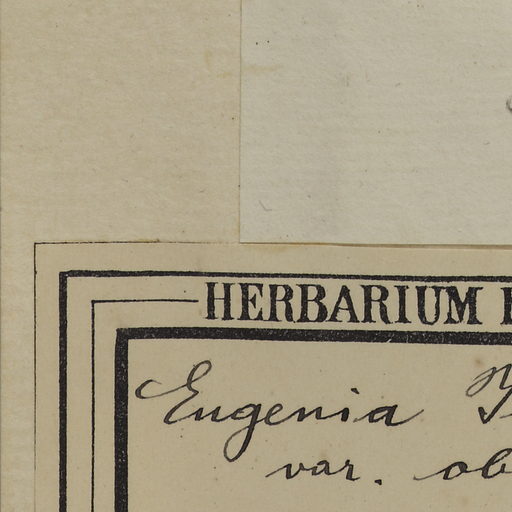 HERBARIUM
Eugenia
var. ob